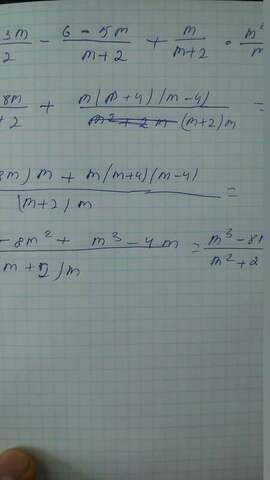 3m/2 - (6-5m)/(m+2) + m/(m+2) · m²/m
8m/+2 + m(m+4)(m-4)/(m+2)m =
8m)m + m(m+4)(m-4)/(m+2)m =
-8m² + m³-4m/m+2)m = m³-8m/m²+2